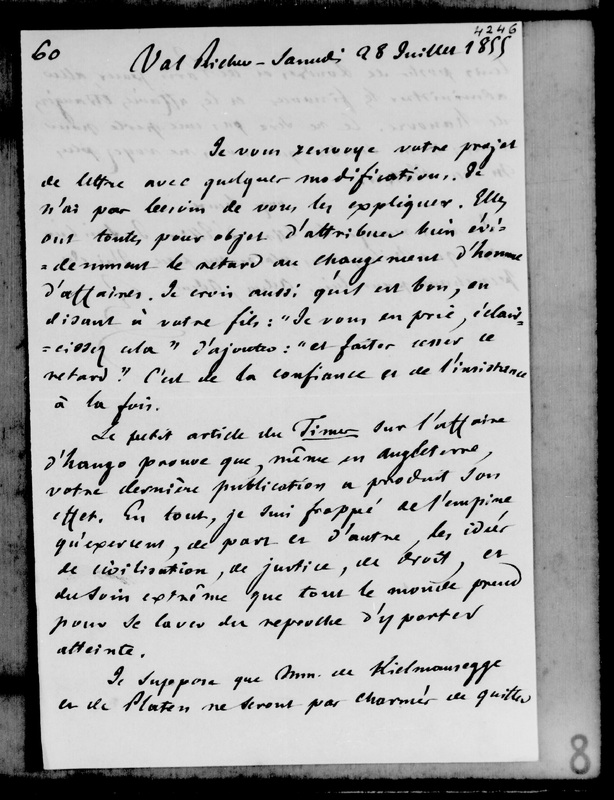 4246
60
Val Richer - Samedi 28 Juillet 1855
Je vous renvoye votre projet
de lettre avec quelques modifications. Je
n'ai pas besoin de vous les expliquer. Elles
ont toutes pour objet d'attribuer bien évi-
=demment le retard au changement d'homme
d'affaires. Je crois aussi qu'il est bon, en
disant à votre fils : "Je vous en prie, éclair-
=cissez cela" d'ajouter : "et faites cesser ce
retard." C'est de la confiance et de l'insistance
à la fois.
Le petit article du Times sur l'affaire
d'hango prouve que, même en Angleterre,
votre dernière publication a produit son
effet. En tout, je suis frappé de l'empire
qu'exercent, de part et d'autre, les idées
de civilisation, de justice, de droit, et
du soin extrême que tout le monde prend
pour se laver du reproche d'y porter
atteinte.
Je suppose que Mm. de Kielmansegge
et de Platen ne seront pas charmés de quitter
8